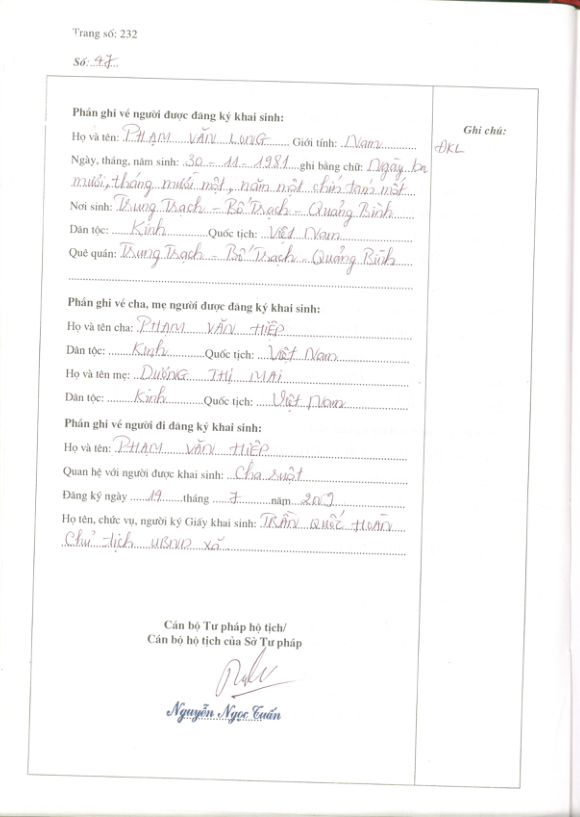 Trang số: 232
Số: 47
Phần ghi về người được đăng ký khai sinh:
Họ và tên: PHẠM VĂN LONG Giới tính: Nam
Ghi chú:
ĐKL
Ngày, tháng, năm sinh: 30 - 11 - 1981 ghi bằng chữ: Ngày ba
mươi, tháng mười một, năm một chín tám một
Nơi sinh: Trung Trạch - Bố Trạch - Quảng Bình
Dân tộc: Kinh Quốc tịch: Việt Nam
Quê quán: Trung Trạch - Bố Trạch - Quảng Bình
Phần ghi về cha, mẹ người được đăng ký khai sinh:
Họ và tên cha: PHẠM VĂN HIỆP
Dân tộc: Kinh Quốc tịch: Việt Nam
Họ và tên mẹ: DƯƠNG THỊ MAI
Dân tộc: Kinh Quốc tịch: Việt Nam
Phần ghi về người đi đăng ký khai sinh:
Họ và tên: PHẠM VĂN HIỆP
Quan hệ với người được khai sinh: Cha ruột
Đăng ký ngày 19 tháng 7 năm
Họ tên, chức vụ, người ký Giấy khai sinh: TRẦN QUỐC HOÀN
Chủ tịch UBND xã
Cán bộ Tư pháp hộ tịch/
Cán bộ hộ tịch của Sở Tư pháp
Nguyễn Ngọc Tuấn